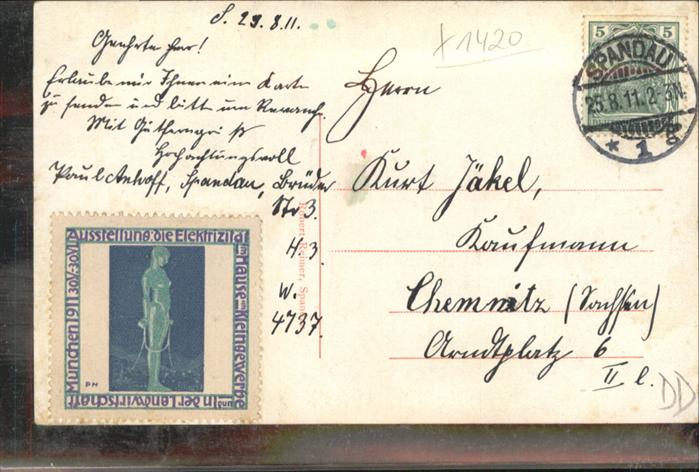 S. 23.8.11.
Geehrter Herr!
Erlaube mir Ihnen eine Karte
zu senden und bitte um Revanch.
Mit Guthemgri ß
Hochachtungsvoll
Paul Anhoff, Spandau, Brüder
Str 3.
H. 3
W.
4737.
+1420
Herrn
Kurt Jäkel,
Kaufmann
Chemnitz (Sachsen)
Arndtplatz 6
II l.
DD
5 5
SPANDAU
25.8.11.2-3N.
* 1 g
Robert Reimer, Spandau
Ausstellung: die Elektrizität
im Hause im Kleingewerbe
und in der Landwirtschaft
München 1911 30.V.-30.VII
PN